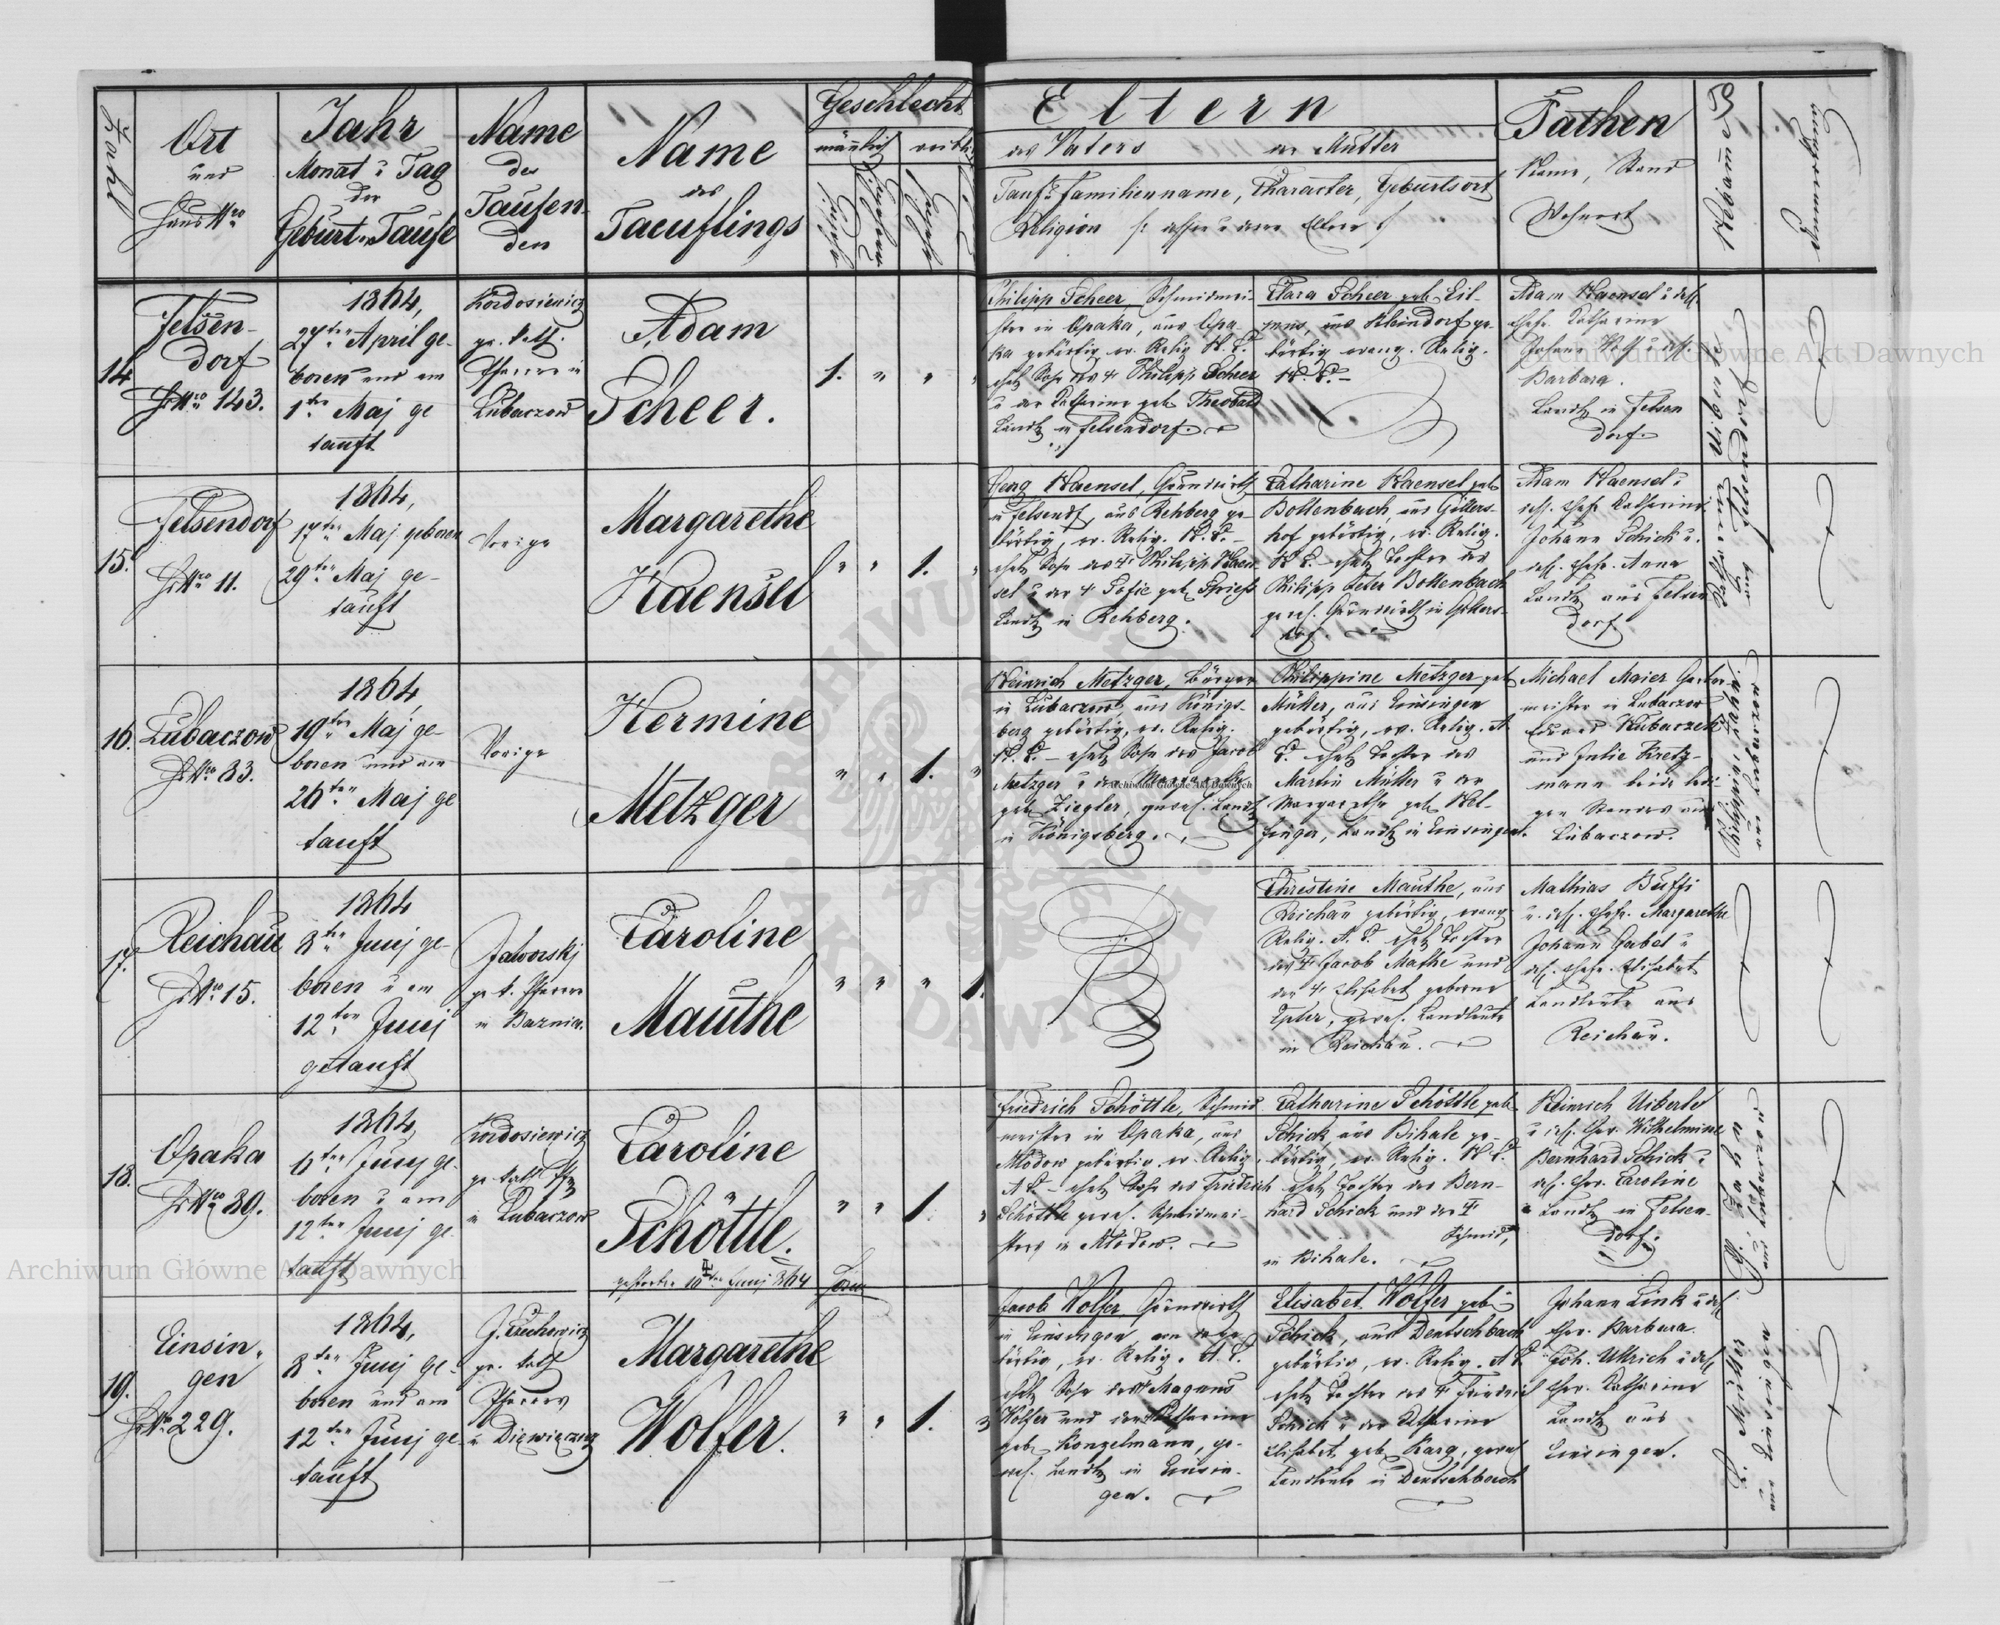 Zahl
Ort
und
Haus Nro
Jahr
Monat u Tag
der
Geburt u. Taufe
Name
des
Taufen-
den
Name
des
Taeuflings
Geschlecht
mänlich
weiblich
Eltern
des Vaters
der Mutter
Tauf- u Familienname, Character, Geburtsort
Religion
Pathen
Name, Stand
Wohnort
Hebamme
Anmerkung
14.
Felsen-
dorf
Hs Nro 143.
1864,
27ten April ge-
boren und am
1ten Maj ge
tauft
Kordosiewicz
gr. kath.
Pfarrer in
Lubaczow
Adam
Scheer.
1. " " "
Philipp Scheer, Schmidmei-
ster in Opaka, aus Opa-
ka gebürtig, ev. Relig. H. C.
ehel. Sohn des † Philipp Scheer
u der Catharine geb. Theobald
Landl. in Felsendorf.
Clara Scheer geb.
aus Kleindorf ge-
bürtig evang. Relig.
H. C. –
Adam Haensel u dess.
Ehefr. Catharine
Johann
Barbara.
Landl. in Felsen
dorf.
aus Felsendorf
15.
Felsendorf
Hs Nro 11.
1864,
17ten Maj geboren
29ten Maj ge-
tauft
Vorige
Margarethe
Haensel
" " 1. "
Georg Haensel, Grundwirth
in Felsend., aus Rehberg ge-
bürtig, ev. Relig. H. C. –
ehel. Sohn des † Philipp Haen
sel u der † Sofie geb. Spiess
Landl. in Rehberg.
Catharine Haensel geb.
Bollenbach, aus Gillers-
hof gebürtig, ev. Relig.
H. C. ehel. Tochter des
Philipp Peter Bollenbach
gewes. Grundwirth in Gillers-
hof.
Adam Haensel u
dess. Ehefr. Catharine
Johann Schick u.
dess. Ehefr. Anna
Landl. aus Felsen
dorf.
16.
Lubaczow
Hs Nro 33.
1864,
19ten Maj ge-
boren und am
26ten Maj ge
tauft
Vorige
Hermine
Metzger
" " 1. "
Heinrich Metzger, Bürger
in Lubaczow, aus Königs-
berg gebürtig, ev. Relig.
H. C. – ehel. Sohn des Jacob
Metzger u der Margareth
geb. Ziegler, gewes. Landl.
in Königsberg.
Philippine Metzger geb.
Müller, aus Einsingen
gebürtig, ev. Relig. A.
C. ehel. Tochter des
Martin Müller u der
Margarethe geb. Hel-
finger, Landl. in Einsingen.
Michael Maier
meister in Lubaczow
Eduard Kubaczek
und Julie Kretz-
mann beide ledi-
gen Standes aus
Lubaczow.
Philippine Jahn
aus Lubaczow
17.
Reichau
Hs Nro 15.
1864
3ten Junj ge-
boren u am
12ten Junj
getauft
Jaworskj
gr. k. Pfarrer
in Baznia.
Caroline
Mauthe
" " " 1.
Christine Mauthe, aus
Reichau gebürtig, evang
Relig. A. C. ehel. Tochter
des † Jacob Mathe und
der † Elisabet geborne
gewes. Landleute
in Reichau.
Mathias Buffi
u. dess. Ehefr. Margarethe
Johann Gabel u
dess. Ehefr. Elisabet
Landleute aus
Reichau.
18.
Opaka
Hs Nro 39.
1864,
6ten Junj ge-
boren u am
12ten Junj ge-
tauft
Kordosiewicz
gr. kath Pfr
in Lubaczow
Caroline
Schöttle.
gestorben 10ten Junj 1864
" " 1. "
Friedrich Schöttle, Schmid
meister in Opaka, aus
Mlodow gebürtig ev. Relig.
A C. – ehel. Sohn des Friedrich
Schöttle gewes. Schmidmei-
sters in Mlodow.
Catharine Schöttle geb.
Schick aus Bihale ge-
bürtig, ev. Relig. H. C.
ehel. Tochter des Bern-
hard Schick und der †
Schmid,
in Bihale.
Heinrich Uiberle
u dess. Ehr. Wilhelmine
Bernhard Schick u
dess. Ehr. Caroline
Landl. in Felsen-
dorf.
Ph. Jahn
aus Lubaczow
19.
Einsin-
gen
Hs Nro 229.
1864,
8ten Junj ge-
boren und am
12ten Junj ge
tauft
gr. kath
Pfarrer
Margarethe
Wolfer.
" " 1. "
Jacob Wolfer Grundwirth
in Einsingen, von da ge-
bürtig, ev. Relig. A. C.
ehel. Sohn des † Magnus
Wolfer und der Catharine
geb. Konzelmann, ge-
wes. Landl. in Einsin-
gen.
Elisabet Wolfer geb.
Schick, aus Deutschbach
gebürtig, ev. Relig. A C.
ehel. Tochter des † Friedrich
Schick u der Catharine
Elisabet, geb. Karg, gewes.
Landleute in Deutschbach
Johann Link u dess
Ehr. Barbara.
Joh. Ullrich u dess
Ehr. Catharine
Landl. aus
Einsingen.
Müller
aus Einsingen
Archiwum Główne Akt Dawnych
Archiwum Główne Akt Dawnych
Archiwum Główne Akt Dawnych